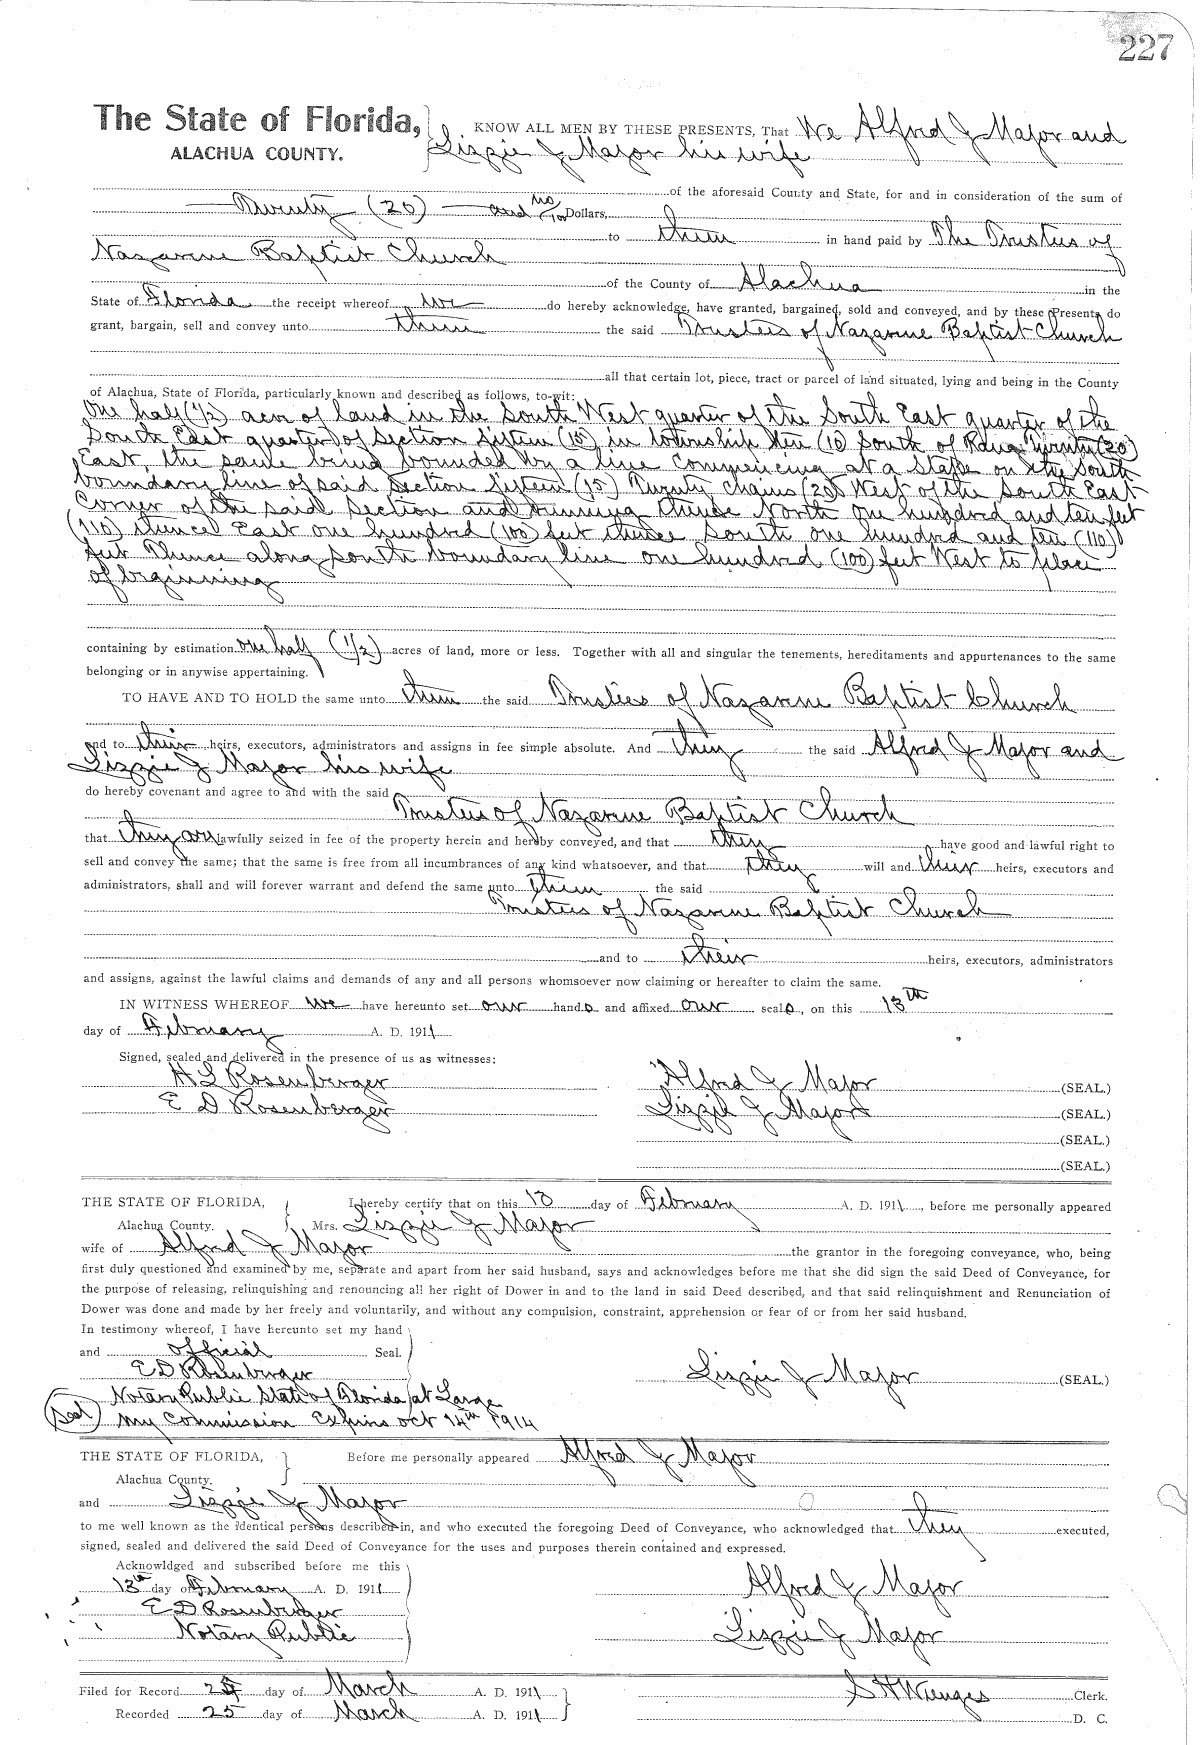 227
The State of Florida,
ALACHUA COUNTY.
KNOW ALL MEN BY THESE PRESENTS, That We Alfred J Major and
Lizzie J Major his wife
of the aforesaid County and State, for and in consideration of the sum of
Twenty (20) and no/100 Dollars,
to them in hand paid by The Trustees of
Nazarine Baptist Church
of the County of Alachua in the
State of Florida the receipt whereof we do hereby acknowledge, have granted, bargained, sold and conveyed, and by these Presents do
grant, bargain, sell and convey unto them the said Trustees of Nazarine Baptist Church
all that certain lot, piece, tract or parcel of land situated, lying and being in the County
of Alachua, State of Florida, particularly known and described as follows, to-wit:
One half (1/2) acre of land in the South West quarter of the South East quarter of the
South East quarter of Section fifteen (15) in township ten (10 South of Range Twenty (20)
East, the same being bounded by a line commencing at a stake on the South
boundary line of said Section fifteen (15) Twenty chains (20) West of the South East
Corner of the said Section and running thence North one hundred and ten feet
(110) thence East one hundred (100) feet thence South one hundred and ten (110)
feet Thence along south boundary line one hundred (100) feet West to place
of beginning
containing by estimation one half (1/2) acres of land, more or less. Together with all and singular the tenements, hereditaments and appurtenances to the same
belonging or in anywise appertaining.
TO HAVE AND TO HOLD the same unto them the said Trustees of Nazarine Baptist Church
and to their heirs, executors, administrators and assigns in fee simple absolute. And they the said Alfred J Major and
Lizzie J Major his wife
do hereby covenant and agree to and with the said
Trustees of Nazarine Baptist Church
that they are lawfully seized in fee of the property herein and hereby conveyed, and that they have good and lawful right to
sell and convey the same; that the same is free from all incumbrances of any kind whatsoever, and that they will and their heirs, executors and
administrators, shall and will forever warrant and defend the same unto them the said
Trustees of Nazarine Baptist Church
and to their heirs, executors, administrators
and assigns, against the lawful claims and demands of any and all persons whomsoever now claiming or hereafter to claim the same.
IN WITNESS WHEREOF we have hereunto set our hands and affixed our seals, on this 13th
day of February A. D. 1911
Signed, sealed and delivered in the presence of us as witnesses:
H L Rosenberger Alfred J Major (SEAL.)
E D Rosenberger Lizzie J Major (SEAL.)
(SEAL.)
(SEAL.)
THE STATE OF FLORIDA, I hereby certify that on this 13 day of February A. D. 1911, before me personally appeared
Alachua County. Mrs. Lizzie J Major
wife of Alfred J Major the grantor in the foregoing conveyance, who, being
first duly questioned and examined by me, separate and apart from her said husband, says and acknowledges before me that she did sign the said Deed of Conveyance, for
the purpose of releasing, relinquishing and renouncing all her right of Dower in and to the land in said Deed described, and that said relinquishment and Renunciation of
Dower was done and made by her freely and voluntarily, and without any compulsion, constraint, apprehension or fear of or from her said husband.
In testimony whereof, I have hereunto set my hand
and official Seal.
E D Rosenberger Lizzie J Major (SEAL.)
Notary Public State of Florida at Large
(Seal) My Commission Expires Oct 14th 1914
THE STATE OF FLORIDA, Before me personally appeared Alfred J Major
Alachua County.
and Lizzie J Major
to me well known as the identical persons described in, and who executed the foregoing Deed of Conveyance, who acknowledged that they executed,
signed, sealed and delivered the said Deed of Conveyance for the uses and purposes therein contained and expressed.
Acknowldged and subscribed before me this
13th day of February A. D. 1911 Alfred J Major
E D Rosenberger
Notary Public Lizzie J Major
Filed for Record day of March A. D. 1911 S H Wienges Clerk.
Recorded 25 day of March A. D. 1911 D. C.